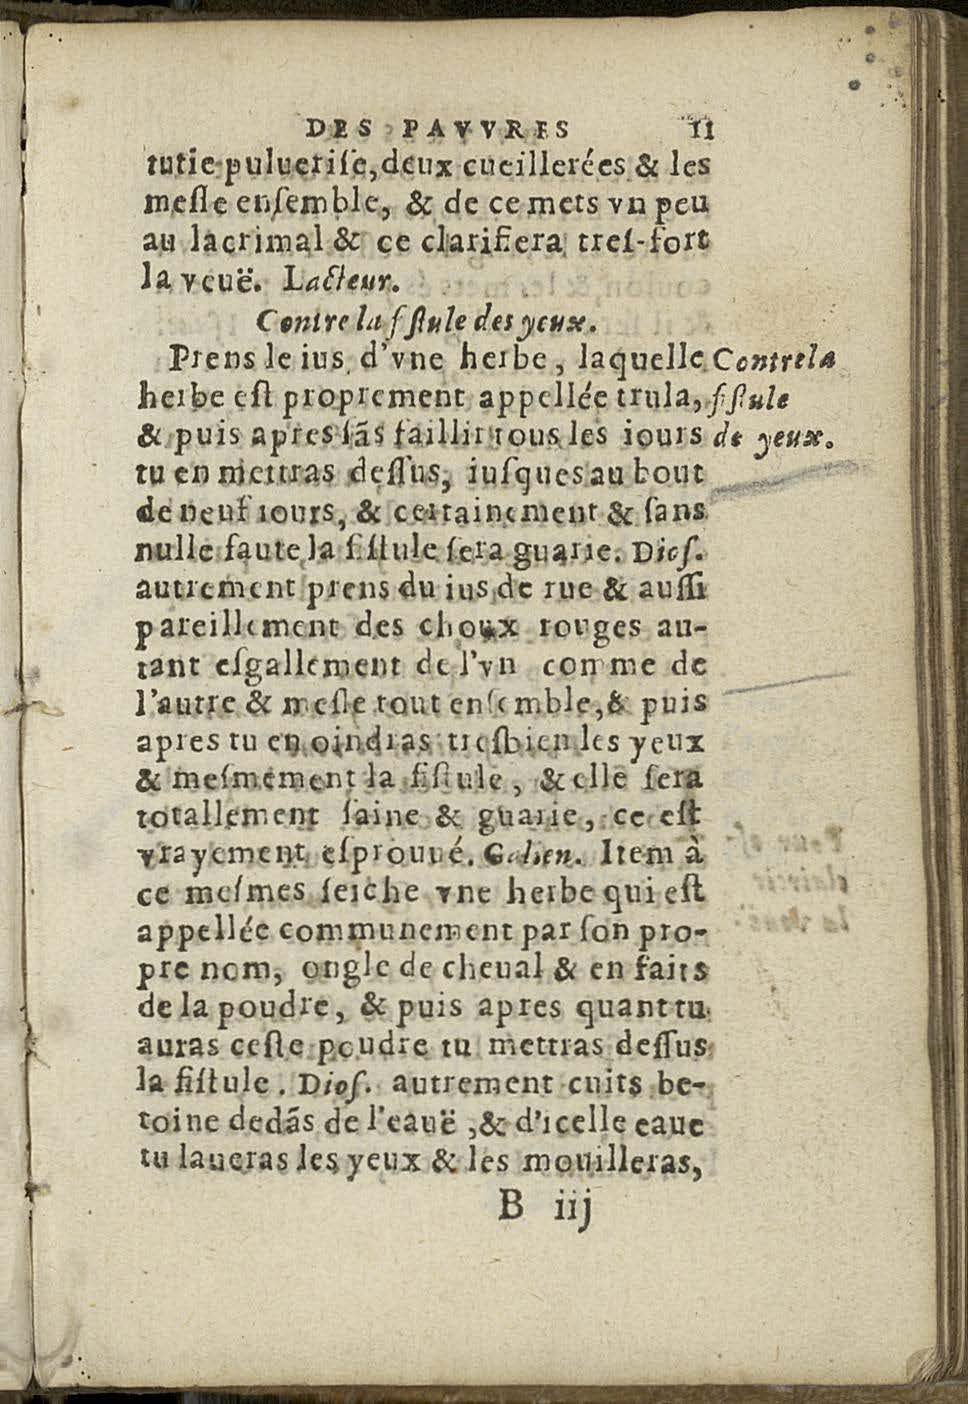 DES PAVVRES 11
tutie puluerise, deux cueillerées & les
mesle ensemble, & de ce mets vn peu
au lacrimal & ce clarifiera tres-fort
la veuë. Lacteur.
Contre la fistule des yeux.
Prens le ius d'vne herbe, laquelle
herbe est proprement appellée trula,
& puis apres sãs faillir tous les iours
tu en mettras dessus, iusques au bout
de neuf iours, & certainement & sans
nulle faute la fistule sera guarie. Dios.
autrement prens du ius de rue & aussi
pareillement des choux rouges au-
tant esgallement de l'vn comme de
l'autre & mesle tout ensemble, & puis
apres tu en oindras tresbien les yeux
& mesmement la fistule, & elle sera
totallement saine & guarie, ce est
vrayement esprouué. Galien. Item à
ce mesmes seiche vne herbe qui est
appellée communement par son pro-
pre nom, ongle de cheual & en faits
de la poudre, & puis apres quant tu
auras ceste poudre tu mettras dessus
la fistule. Dios. autrement cuits be-
toine dedãs de l'eauë, & d'icelle eaue
tu laueras les yeux & les mouilleras,
B iij
Contre la
fistule
de yeux.